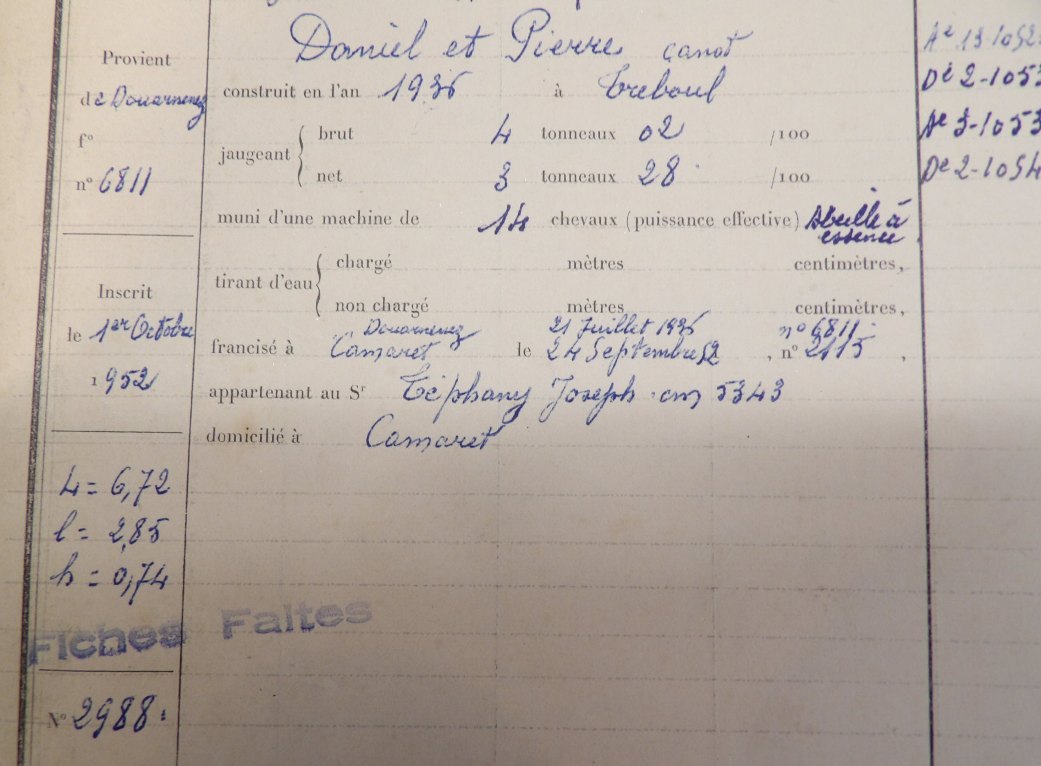 Daniel et Pierre canot
construit en l'an 1936 à Treboul
jaugeant brut 4 tonneaux 02 /100
net 3 tonneaux 28 /100
muni d'une machine de 14 chevaux (puissance effective) Abeille à
essence
tirant d'eau chargé mètres centimètres,
non chargé mètres centimètres,
Douarnenez 21 Juillet 1936 n° 6811
francisé à Camaret le 24 Septembre 52, n° 2115,
appartenant au Sr Téphany Joseph cm 5343
domicilié à Camaret
Provient
de Douarnenez
f°
n° 6811
Inscrit
le 1er Octobre
1952
L = 6,72
l = 2,85
h = 0,74
Fiches Faites
N° 2988
Ae 13-1052
Dé 2-1053
Ae 3-1053
De 2-1054